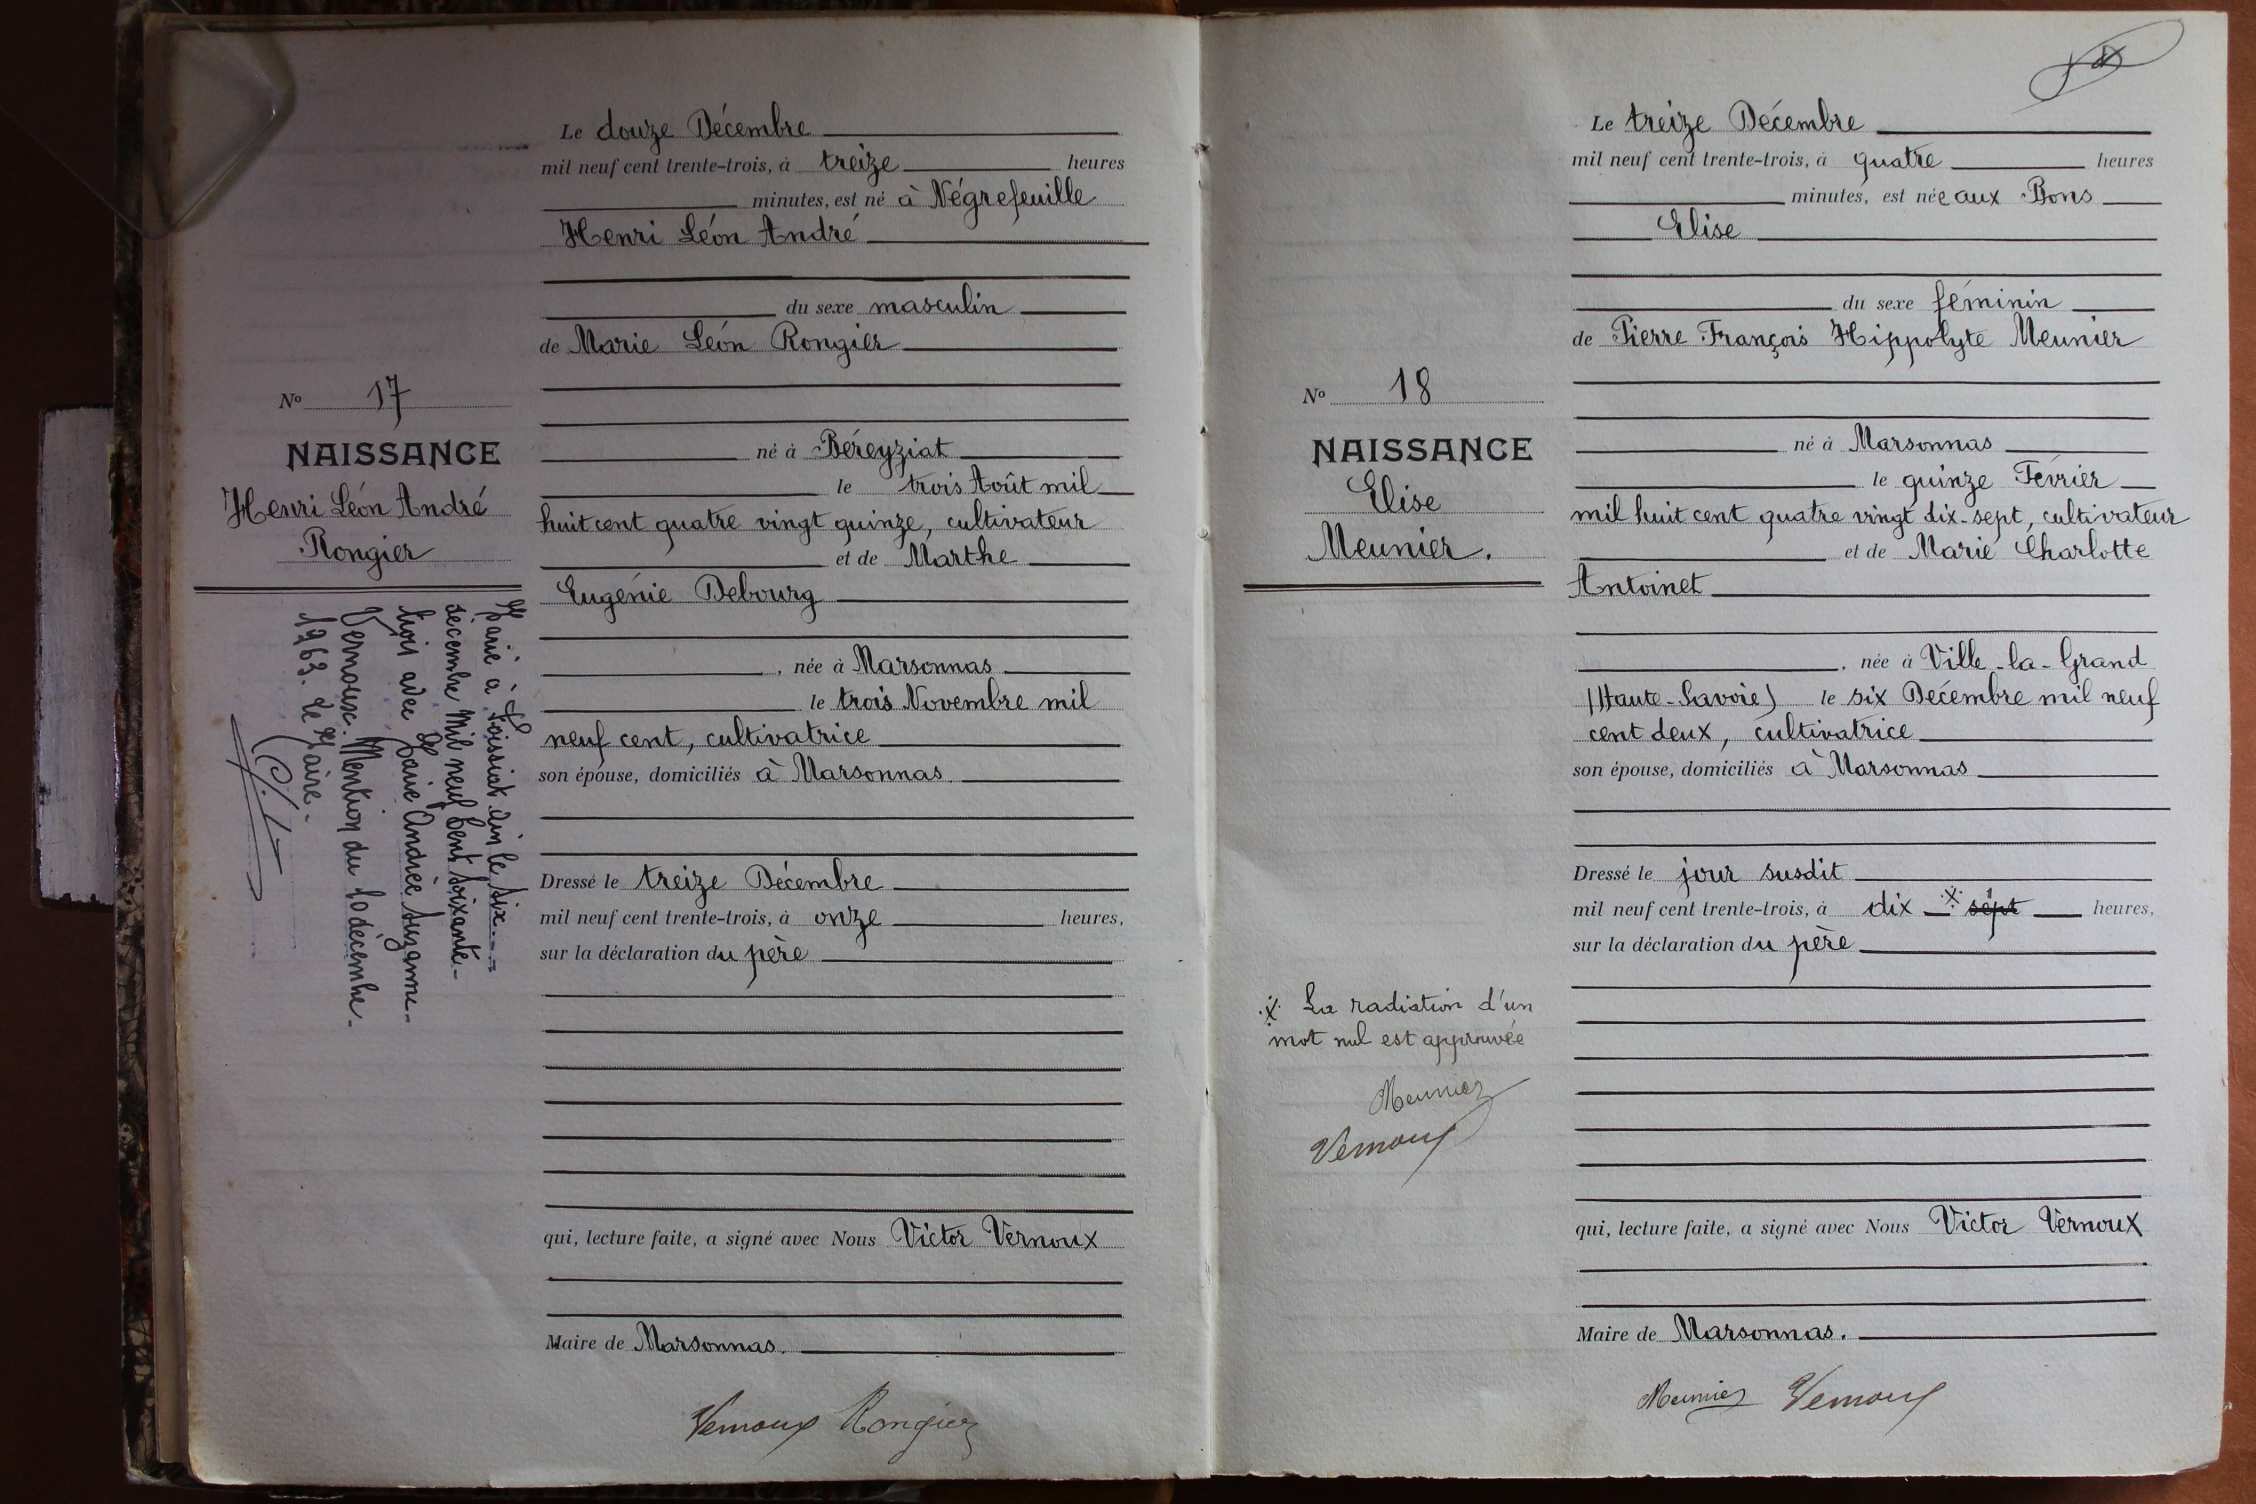 Le douze Décembre
mil neuf cent trente-trois, à treize heures
minutes, est né à Négrefeuille
Henri Léon André
du sexe masculin
de Marie Léon Rongier
né à Béreyziat
le trois Août mil
huit cent quatre vingt quinze, cultivateur
et de Marthe
Eugénie Debourg
, née à Marsonnas
le trois Novembre mil
neuf cent, cultivatrice
son épouse, domiciliés à Marsonnas
Dressé le treize Décembre
mil neuf cent trente-trois, à onze heures,
sur la déclaration du père
qui, lecture faite, a signé avec Nous Victor Vernoux
Maire de Marsonnas.
Vernoux Rongier
No 17
NAISSANCE
Henri Léon André
Rongier
Marié à Foissiat Ain le six
décembre Mil neuf Cent soixante-
trois avec Marie Andrée Suzanne
Vernoux. Mention du 10 décembre
1963. Le Maire.
Le treize Décembre
mil neuf cent trente-trois, à quatre heures
minutes, est née aux Bons
Elise
du sexe féminin
de Pierre François Hippolyte Meunier
né à Marsonnas
le quinze Février
mil huit cent quatre vingt dix-sept, cultivateur
et de Marie Charlotte
Antoinet
, née à Ville-la-Grand
(Haute-Savoie) le six Décembre mil neuf
cent deux, cultivatrice
son épouse, domiciliés à Marsonnas
Dressé le jour susdit
mil neuf cent trente-trois, à dix sept heures,
sur la déclaration du père
qui, lecture faite, a signé avec Nous Victor Vernoux
Maire de Marsonnas.
Meunier Vernoux
No 18
NAISSANCE
Elise
Meunier.
La radiation d'un
mot nul est approuvée
Meunier
Vernoux